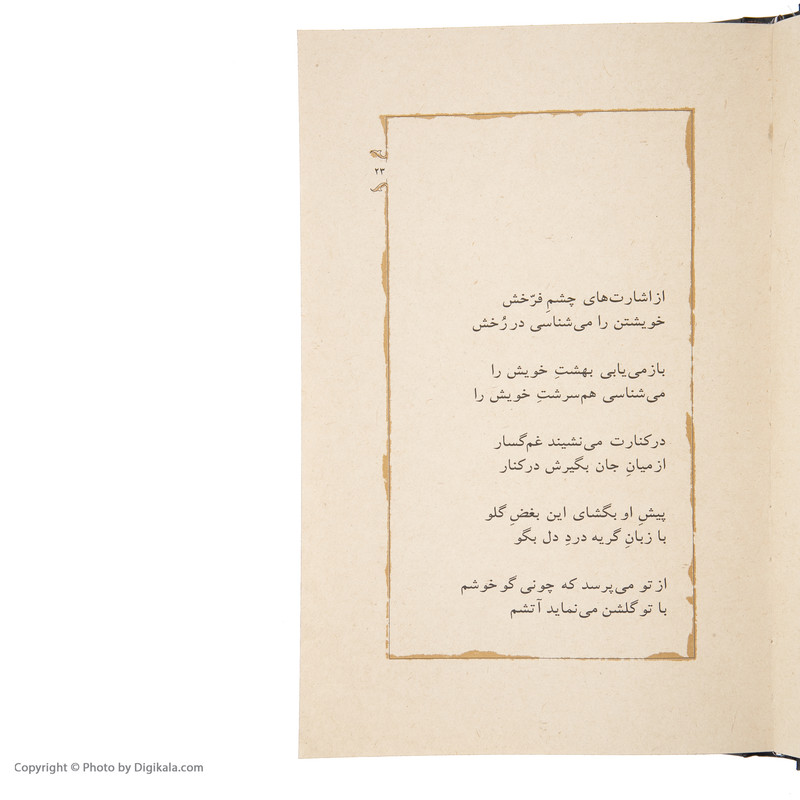 ۲۳
از اشارت‌های چشمِ فرّخش
خویشتن را می‌شناسی در رُخش
بازمی‌یابی بهشتِ خویش را
می‌شناسی هم‌سرشتِ خویش را
در کنارت می‌نشیند غم‌گسار
از میانِ جان بگیرش در کنار
پیشِ او بگشای این بغضِ گلو
با زبانِ گریه دردِ دل بگو
از تو می‌پرسد که چونی گو خوشم
با تو گلشن می‌نماید آتشم
Copyright © Photo by Digikala.com